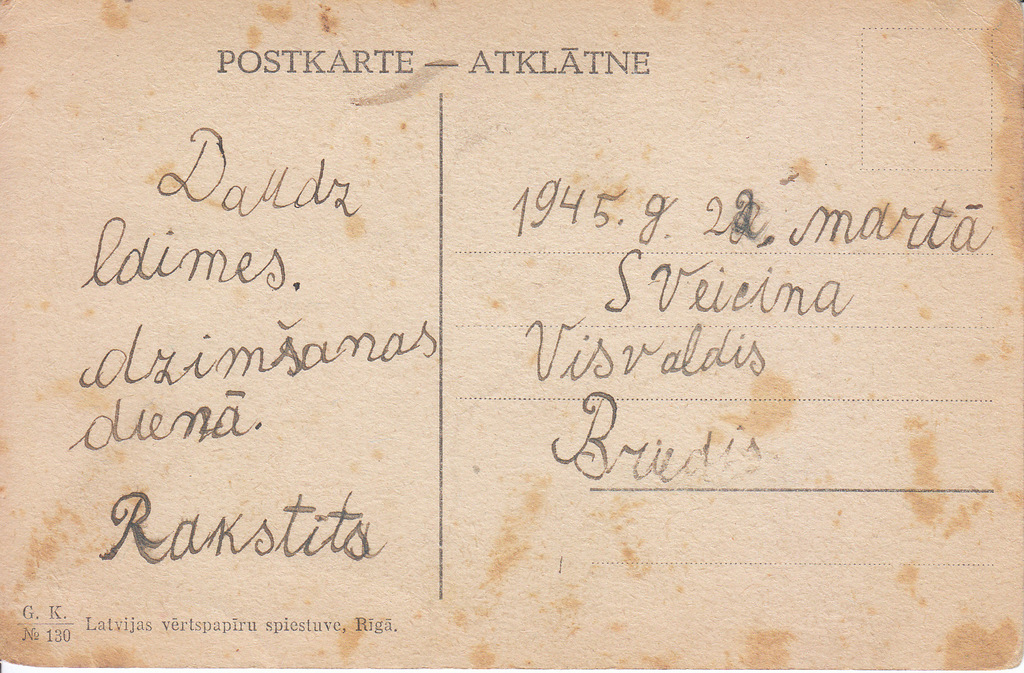 POSTKARTE — ATKLĀTNE
Daudz
ldimes.
dzimšanas
dienā.
Rakstits
1945. g. 22. martā
SVeicina
Visvaldis
Briedis.
G. K.
№ 130
Latvijas vērtspapīru spiestuve, Rīgā.